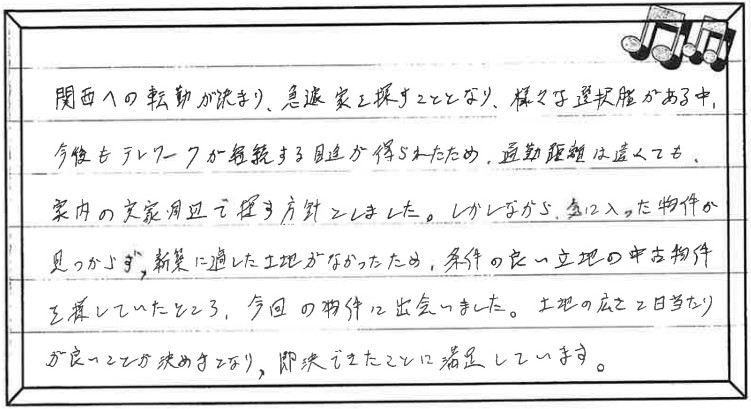 関西への転勤が決まり、急遽家を探すこととなり、様々な選択肢がある中、
今後もテレワークが継続する目途が得られたため、通勤距離は遠くても、
家内の実家周辺で探す方針としました。しかしながら、気に入った物件が
見つからず、新築に適した土地がなかったため、条件の良い立地の中古物件
を探していたところ、今回の物件に出会いました。土地の広さと日当たり
が良いことが決めてとなり、即決できたことに満足しています。